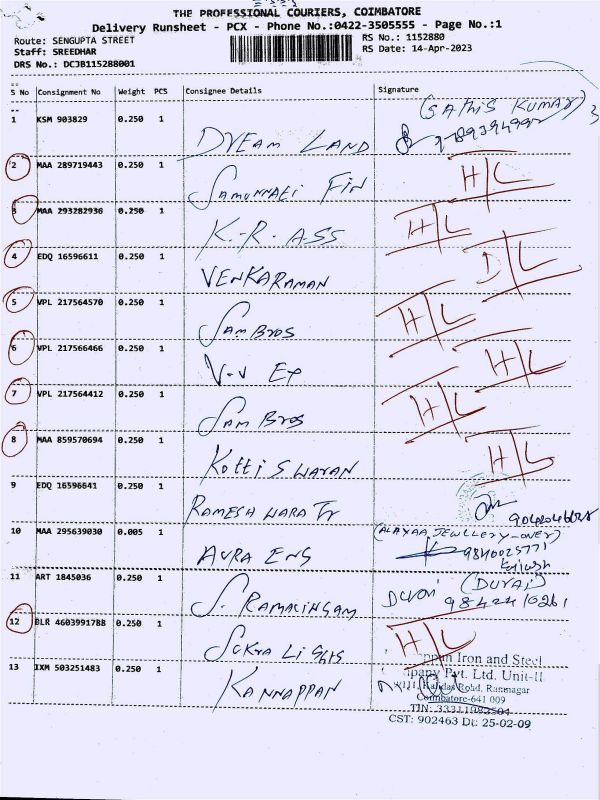 THE PROFESSIONAL COURIERS, COIMBATORE
Delivery Runsheet - PCX - Phone No.:0422-3505555 - Page No.:1
Route: SENGUPTA STREET RS No.: 1152880
Staff: SREEDHAR RS Date: 14-Apr-2023
DRS No.: DCJB115288001
S No Consignment No Weight PCS Consignee Details Signature
(SATHIS KUMAR)
1 KSM 903829 0.250 1
DREAM LAND
2 MAA 289719443 0.250 1 H/L
SAMUNNATI FIN
3 MAA 293282936 0.250 1 H/L
K.R. ASS
4 EDQ 16596611 0.250 1 D/L
VENKARAMAN
5 VPL 217564570 0.250 1 H/L
SAM BROS
6 VPL 217566466 0.250 1 H/L
V-V EX
7 VPL 217564412 0.250 1 H/L
SAM BROS
8 MAA 859570694 0.250 1 H/L
KOTTISWARAN
9 EDQ 16596641 0.250 1
RAMESHWARA Tr
10 MAA 295639030 0.005 1 (ALAYAA JEWLLERY-OVER)
AURA ENG 9840025771
11 ART 1845036 0.250 1 (DURAI)
S. RAMALINGAM DURAI 9842410261
12 BLR 4603991788 0.250 1 H/L
SURYA LIGHTS
Iron and Steel
13 IXM 503251483 0.250 1 Pvt. Ltd. Unit-II
KANNAPPAN Kalidas Road, Ramnagar
Coimbatore-641 009
CST: 902463 Dt: 25-02-09